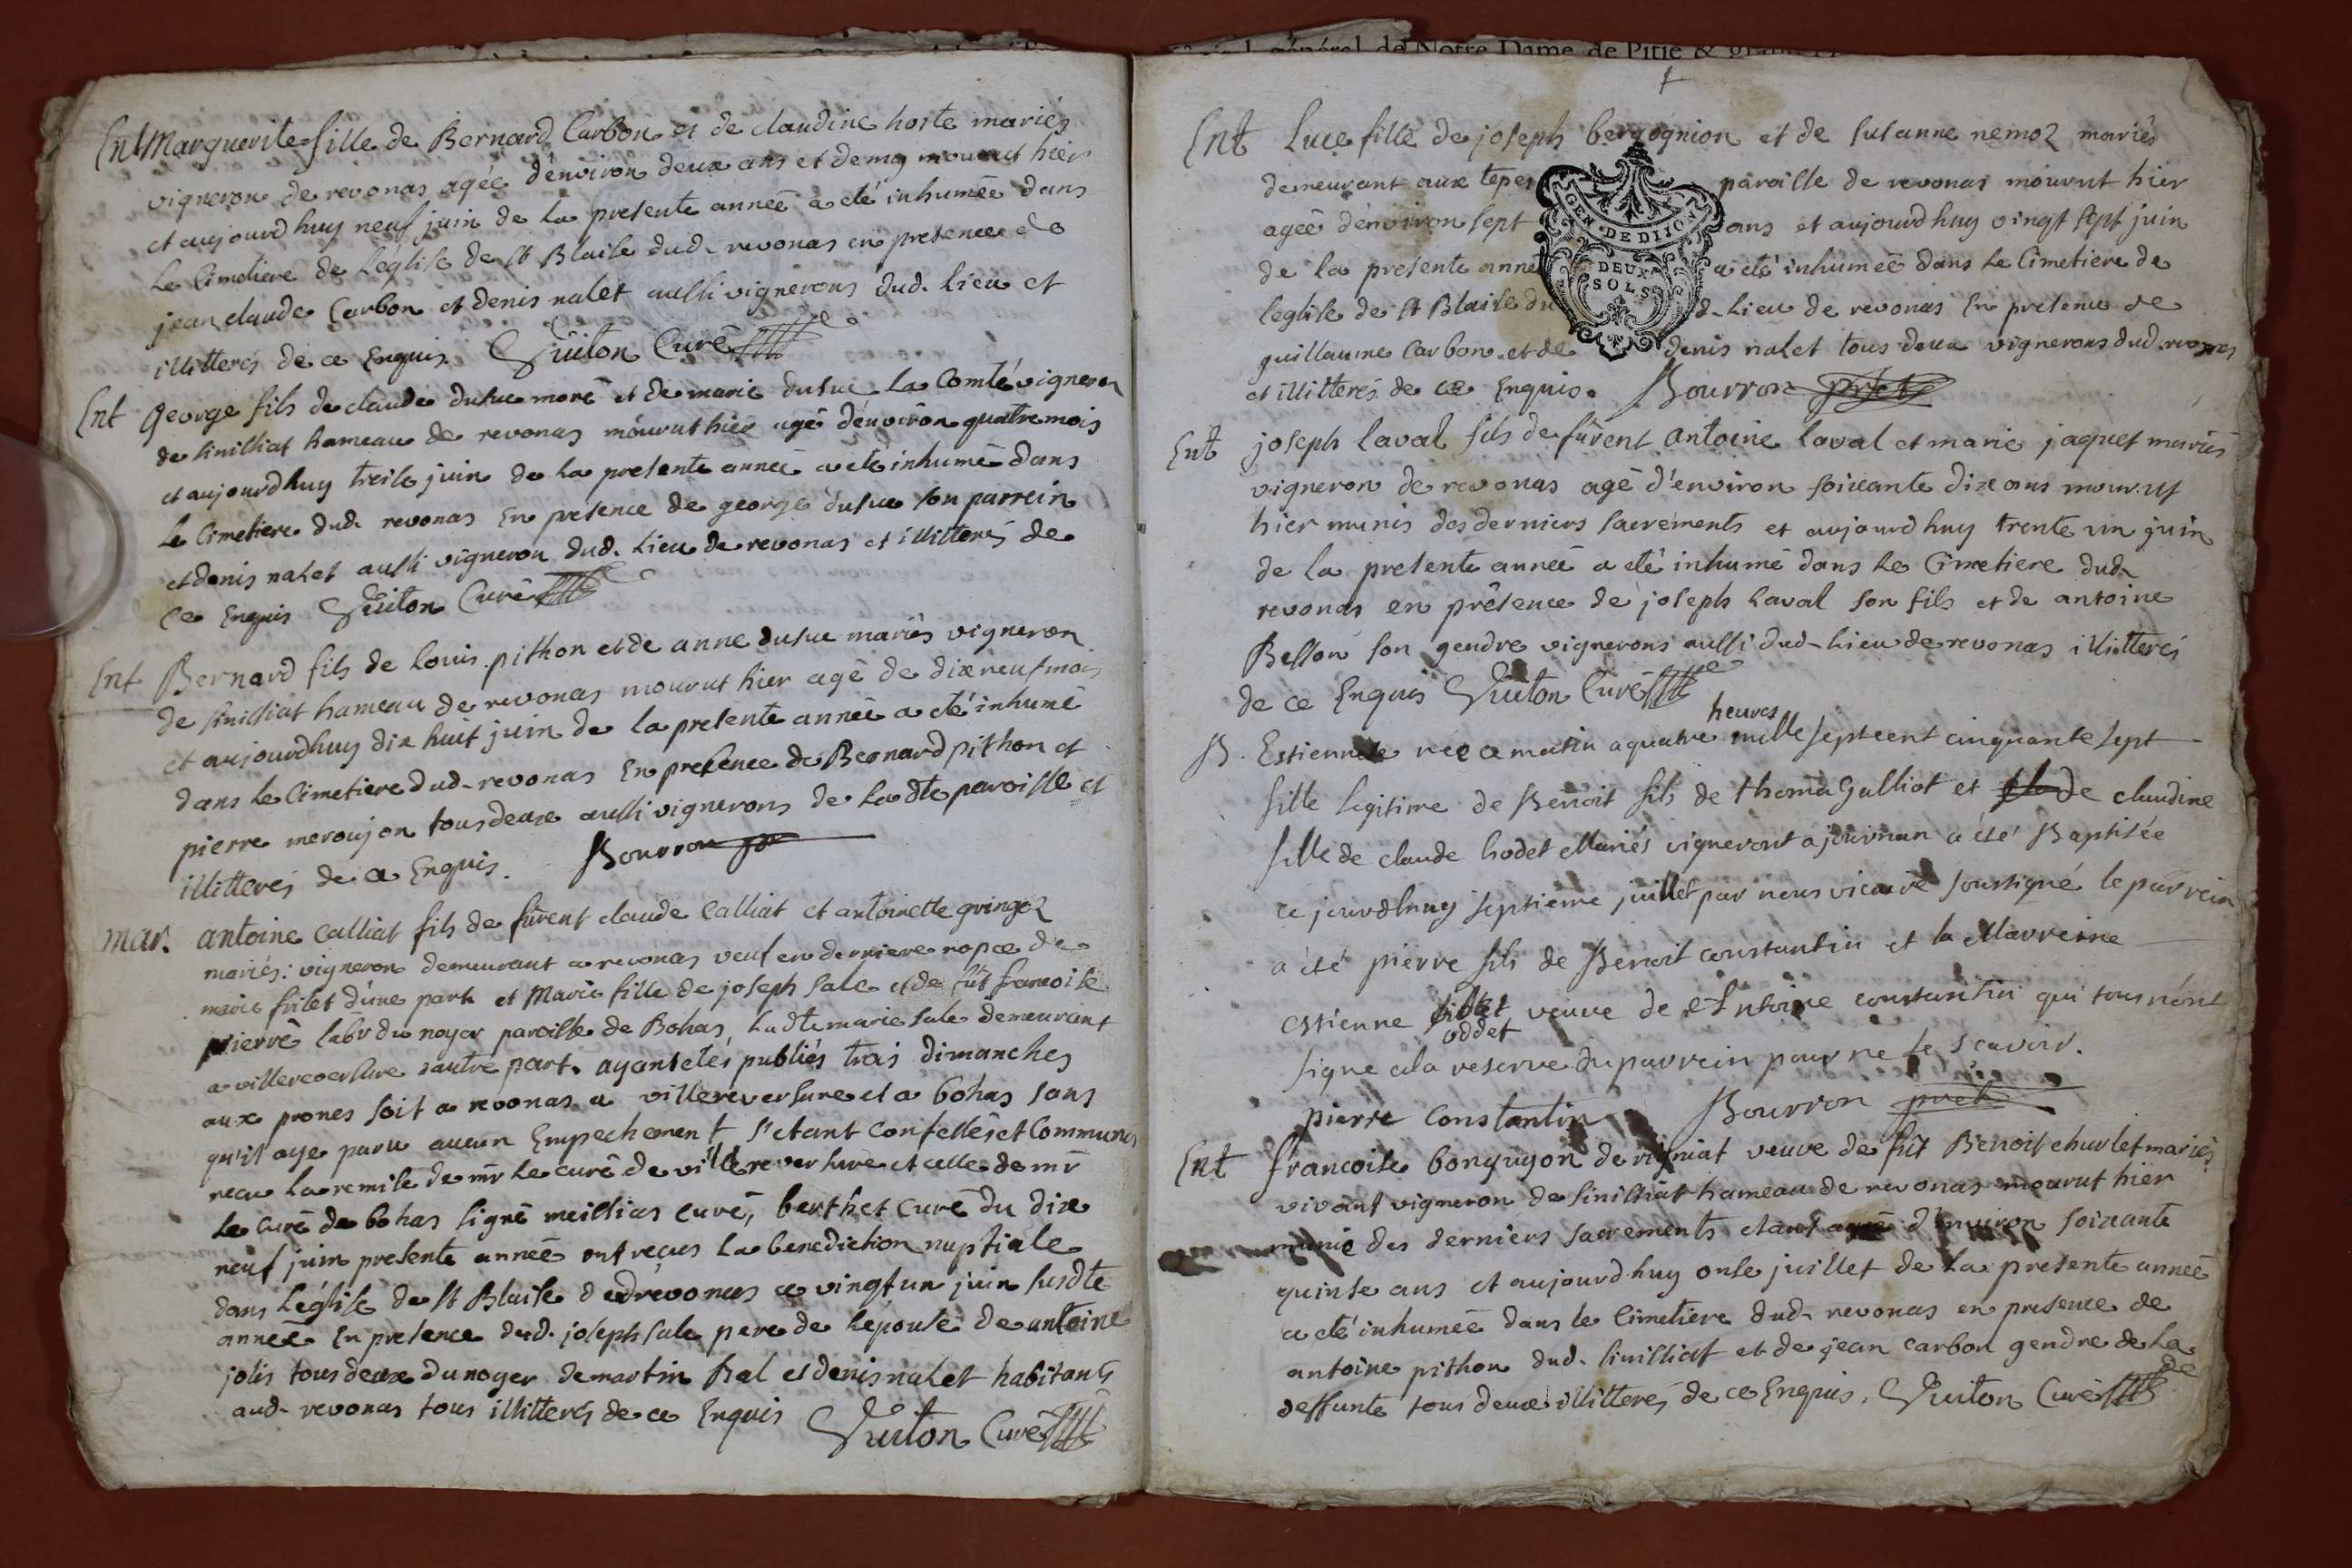 Ent Marguerite fille de Bernard Carbon et de claudine hoste mariés
vigneron de revonas agée d'environ deux ans et demy mourut hier
et aujourdhuy neuf juin de la presente année a eté inhumée dans
le Cimetiere de l'eglise de st Blaise dud. revonas en presence de
jean claude Carbon et denis nalet aussi vignerons dud. lieu et
illitterés de ce Enquis. Guiton Curé
Ent george fils de claude dusuc moré et de marie dusuc La Comté vigneron
de sinilliat hameau de revonas mourut hier agé d'environ quatre mois
et aujourdhuy treise juin de la presente année a eté inhumé dans
le Cimetiere dud. revonas En presence de george dusuc son parrein
et denis nalet aussi vigneron dud. lieu de revonas et illitterés de
ce Enquis Guiton Curé
Ent Bernard fils de louis pithon et de anne dusuc mariés vigneron
de sinilliat hameau de revonas mourut hier agé de dixneuf mois
et aujourdhuy dix huit juin de la presente année a eté inhumé
dans le Cimetiere dud. revonas En presence de Bernard pithon et
pierre meroujon tous deux aussi vignerons de ladte paroisse et
illitterés de ce Enquis. Bourron
mar. antoine calliat fils de fûrent claude calliat et antoinette gringoz
mariés: vigneron demeurant a revonas veuf en derniere nopce de
marie frilet d'une part et Marie fille de joseph sale et de fût francoise
pierre labr du noyer paroisse de Bohas, ladte marie sale demeurant
a villereversure dautre part. ayant etés publiés trois dimanches
aux prones soit a revonas a villereversure et a bohas sans
qu'il aye paru aucun Empechement s'etant confessés et Communiés
recu la remise de mr le curé de villereversure et celle de mr
le curé de bohas signé meillias curé, berthet curé du dix
neuf juin presente année ont reçus la benediction nuptiale
dans l'église de st Blaise dud revonas ce vingt un juin susdte
année En presence dud. joseph sale pere de lepouse de antoine
jolis tous deux du noyer de martin Bal et denis nalet habitants
aud. revonas tous illitterés de ce Enquis Guiton Curé
Ent Luce fille de joseph bergognion et de susanne nemoz mariés
demeurant aux tepes paroisse de revonas mourut hier
agée d'environ sept ans et aujourdhuy vingt sept juin
de la presente année a eté inhumée dans le Cimetiere de
leglise de st Blaise du d. lieu de revonas En presence de
guillaume Carbon et de denis nalet tous deux vignerons dud. revonas
et illitterés de ce Enquis. Bourron prêtre
GEN. DE DIJON
DEUX
SOLS
Ent joseph laval fils de fûrent antoine laval et marie jaquet mariés
vigneron de revonas agé d'environ soixante dix ans mourut
hier munis des derniers sacrements et aujourdhuy trente un juin
de la presente année a eté inhumé dans le Cimetiere dud.
revonas en presence de joseph laval son fils et de antoine
Besson son gendre vignerons aussi dud. lieu de revonas illitterés
de ce Enquis Guiton Curé
B. Estiennete née ce matin a quatre heures mille septcent cinquante sept
fille legitime de Benoit fils de thoma Galliot et de claudine
fille de claude hodet Mariés vigneront a journan a été Baptisée
ce jourdhuy septieme juillet par nous vicaire soussigné le parrein
a été pierre fils de Benoit constantin et la Marreine
estienne oddet veuve de Antoine constantin qui tous n'ont
signe a la reserve du parrein pour ne le scavoir.
pierre Constantin Bourron pretre
Ent francoise bonguyon de rigniat veuve de fût Benoit churlet mariés
vivant vigneron de sinilliat hameau de revonas mourut hier
munie des derniers sacrements etant agée d'environ soixante
quinse ans et aujourdhuy onse juillet de la presente année
a eté inhumée dans le Cimetiere dud. revonas en presence de
antoine pithon dud. sinilliat et de jean carbon gendre de la
deffunte tous deux illitterés de ce Enquis. Guiton Curé